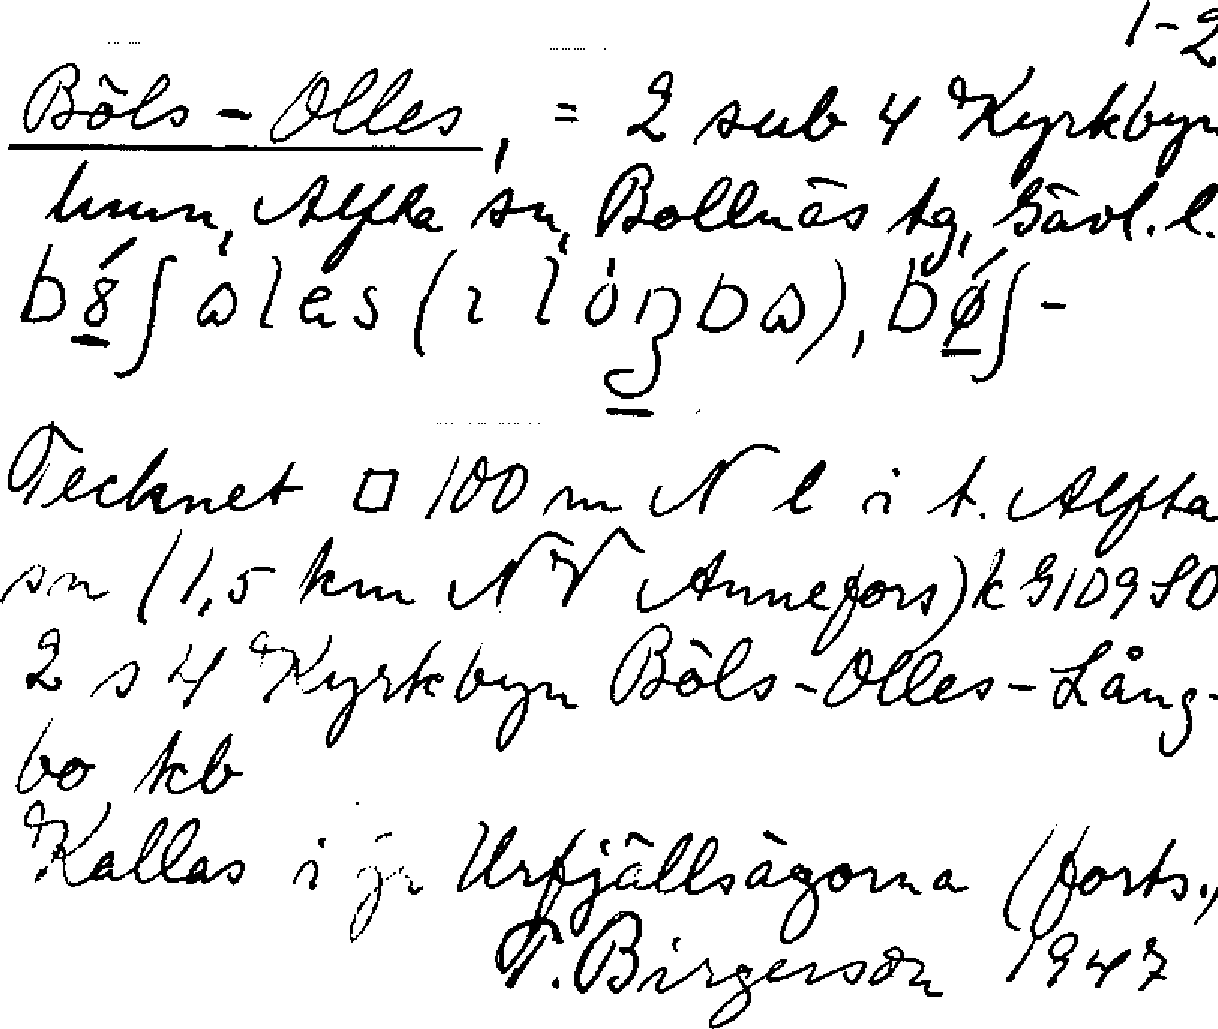 1-2
Böls-Olles, = 2 sub 4 Kyrkbyn
hmn, Alfta sn, Bollnäs tg, Gävl. l.
Tecknet □ 100 m N l i t. Alfta
sn (1,5 km NV Annefors) k G109SO
2 s 4 Kyrkbyn Böls-Olles-Lång-
bo kb
Kallas i jr Urfjällsägorna (forts.,
T. Birgerson 1947